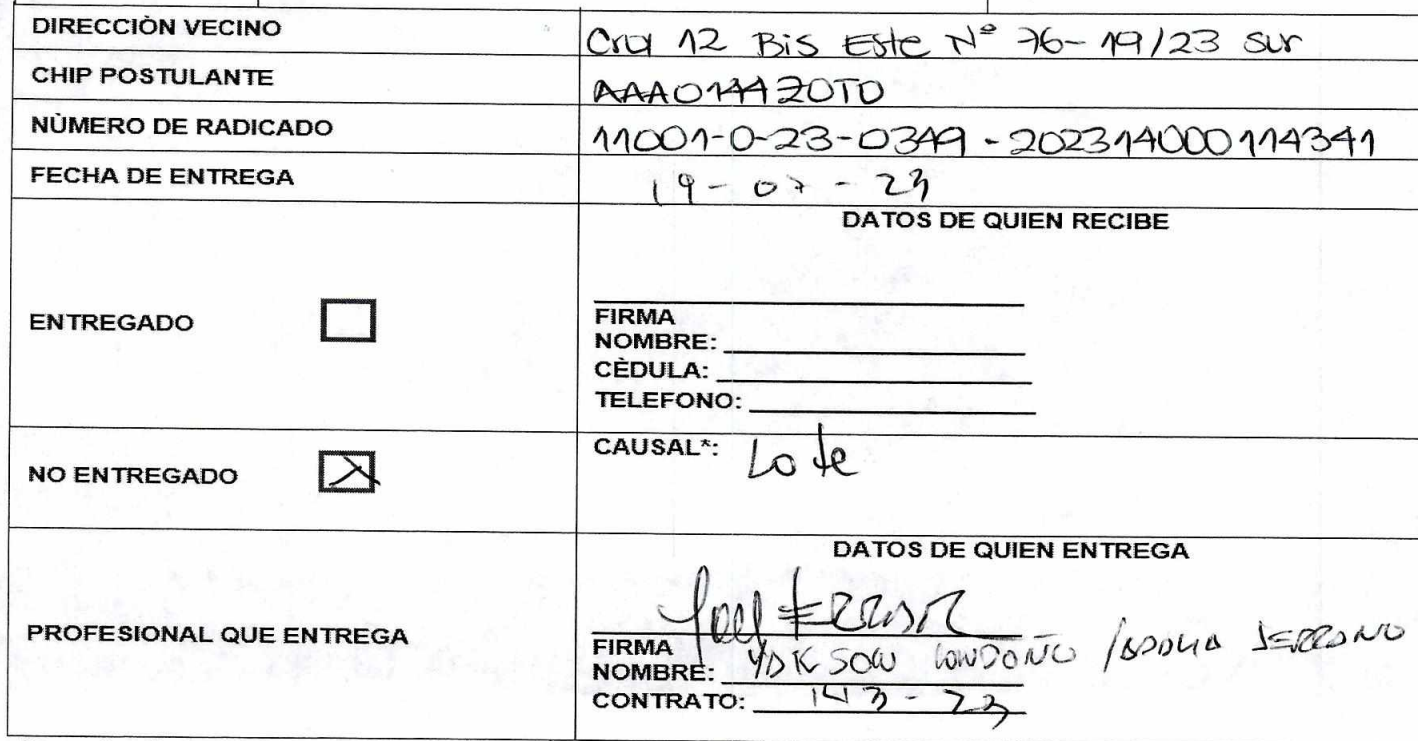 DIRECCIÒN VECINO Cra 12 Bis Este N° 76-19/23 sur
CHIP POSTULANTE AAA0144ZOTO
NÙMERO DE RADICADO 11001-0-23-0349 - 202314000114341
FECHA DE ENTREGA 19-07-23
DATOS DE QUIEN RECIBE
ENTREGADO
FIRMA
NOMBRE:
CÈDULA:
TELEFONO:
NO ENTREGADO X
CAUSAL*: Lote
DATOS DE QUIEN ENTREGA
PROFESIONAL QUE ENTREGA
FIRMA
NOMBRE: LONDOÑO / SERRANO
CONTRATO: 143-23